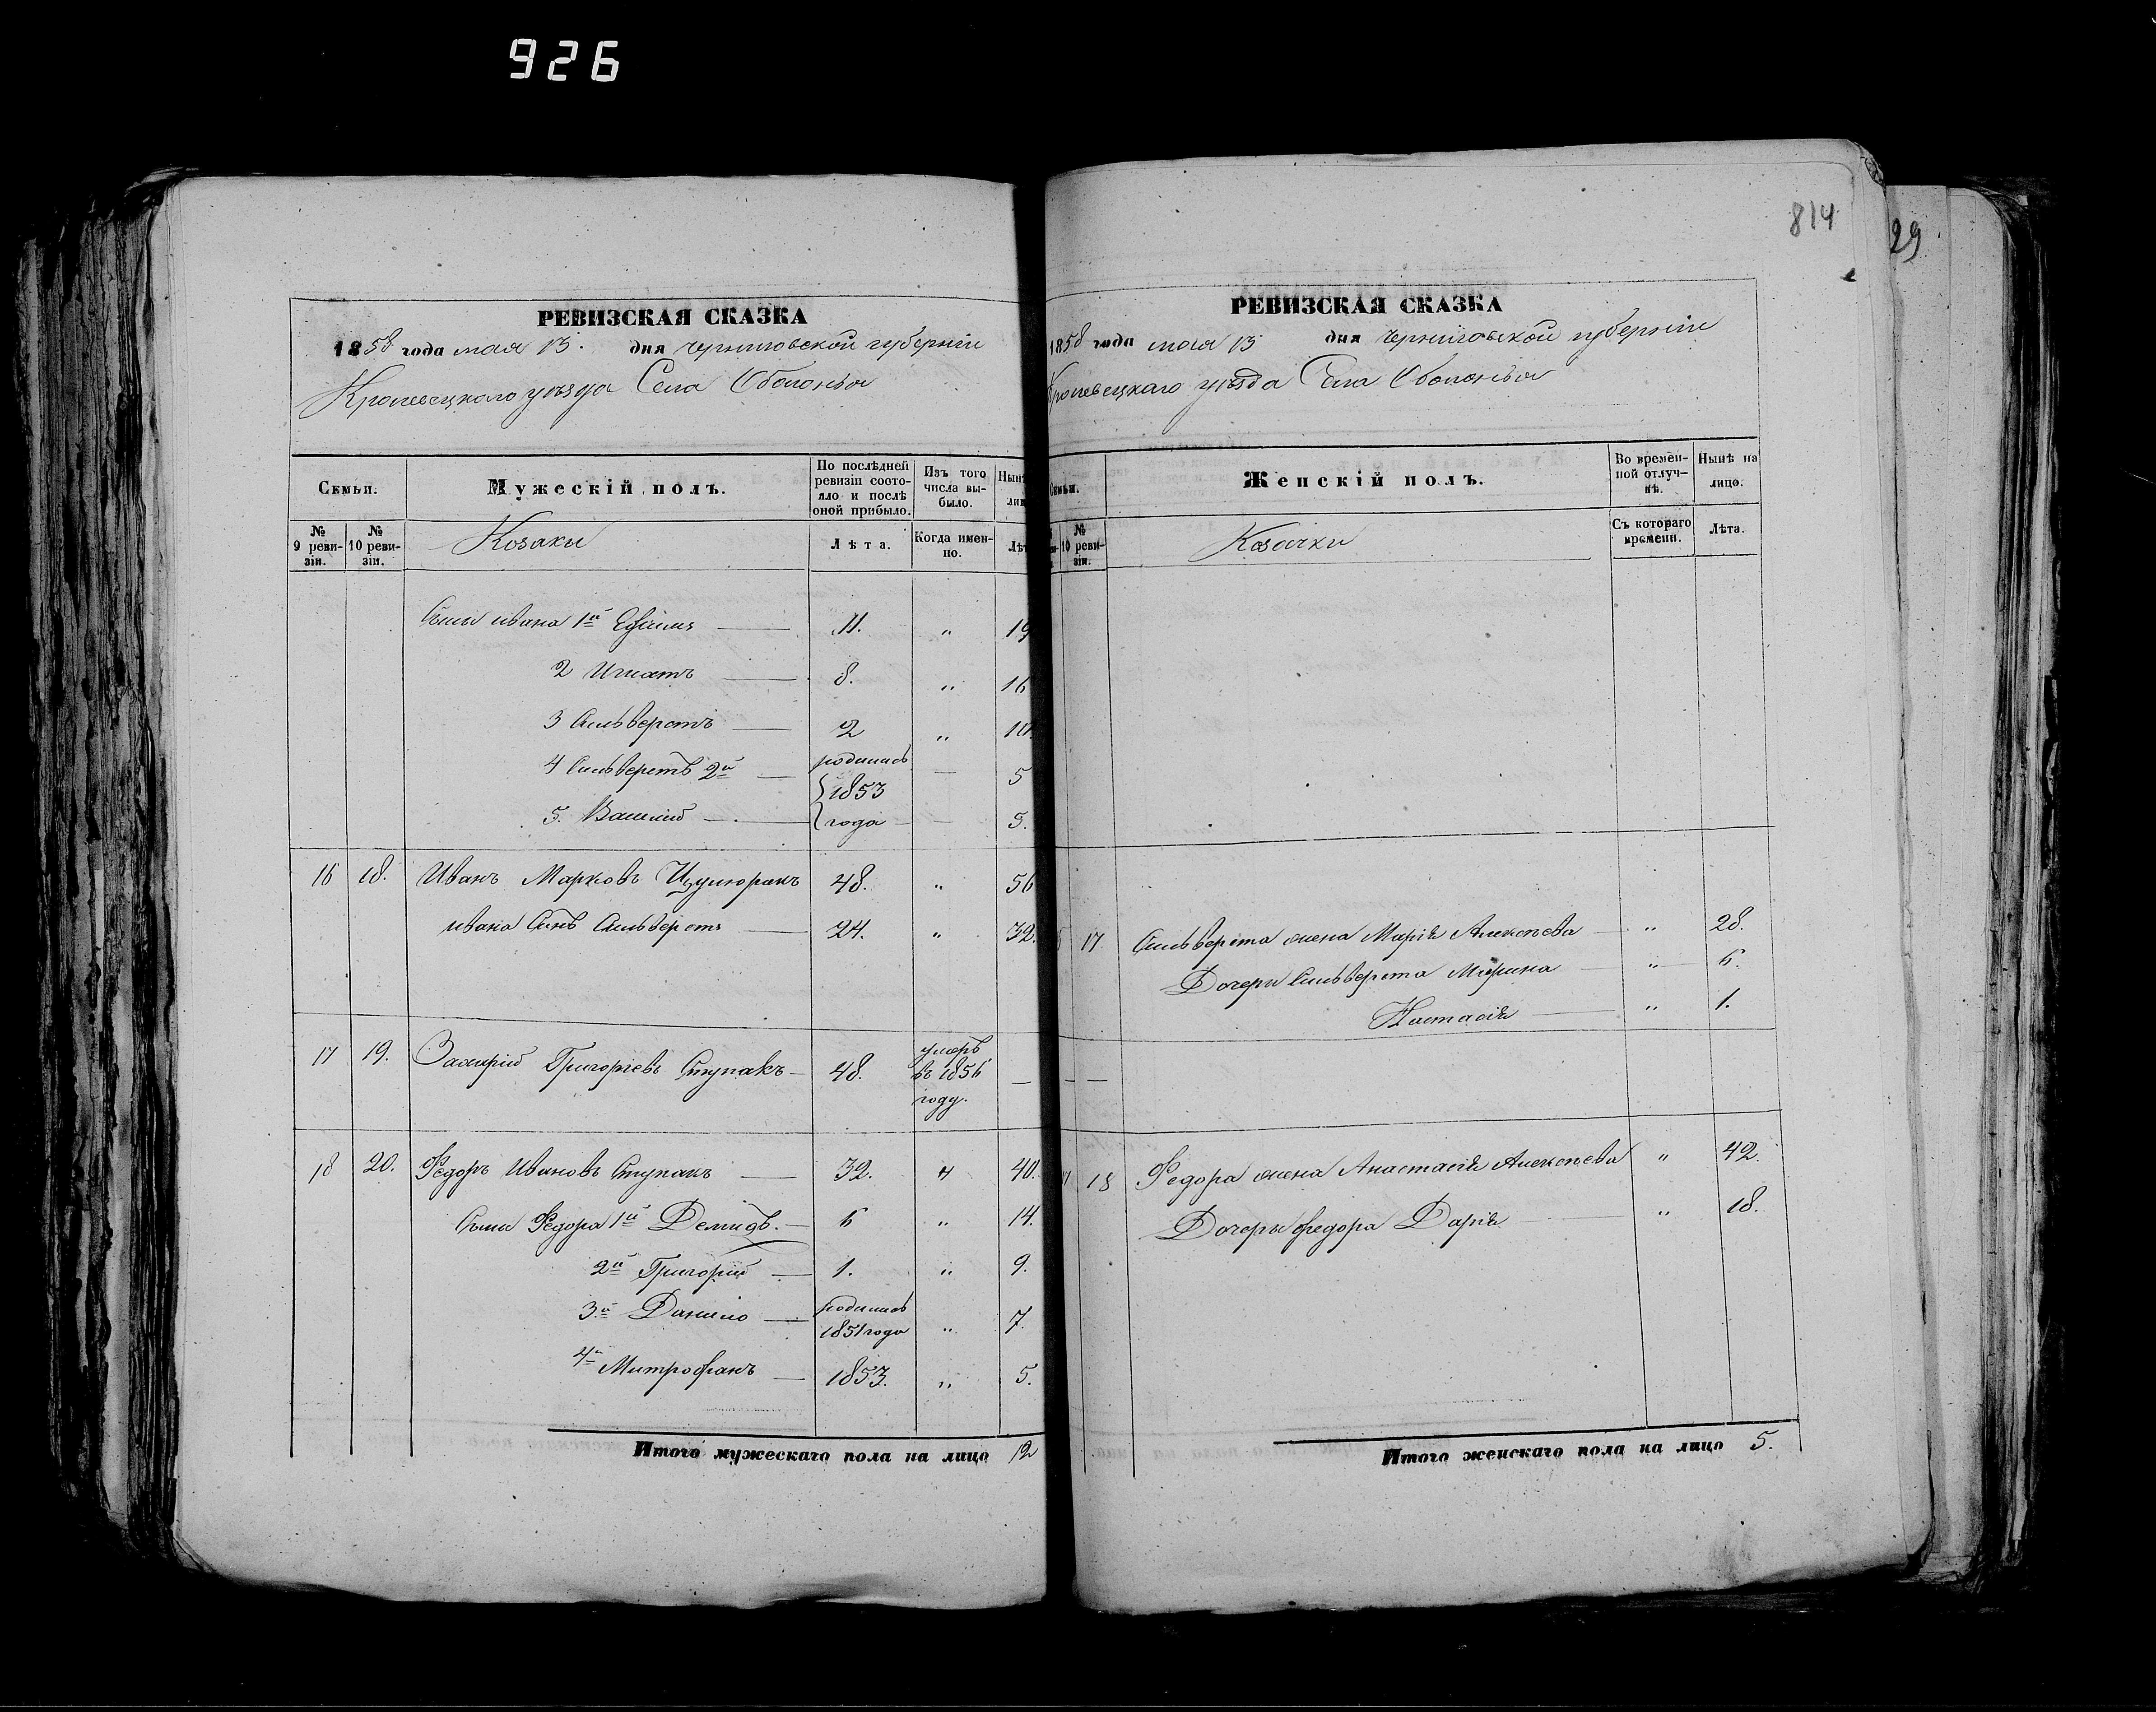 926
814
29
РЕВИЗСКАЯ СКАЗКА
1858 года мая 13. дня черниговской губерніи
Кролевецкаго уѣзда Села Оболонья
Семьи.
Мужескій полъ.
По послѣдней ревизіи состояло и послѣ оной прибыло.
Изъ того числа выбыло.
Нынѣ
№ 9 ревизіи.
№ 10 ревизіи.
Козаки
Лѣта.
Когда именно.
Сыны ивана 1й Ефимъ 11. „ 19
2 Игнатъ 8. „ 16
3 Сильверстъ 2 „ 10.
4 Сильверстъ 2й родились 5
{1853
5. Василій года 5.
16 18. Иванъ Марковъ 48. „ 56
ивана Сынъ Сильверстъ 24. „ 32.
17 19. Захарій Григоріевъ Ступакъ 48. умеръ въ 1856 году. —
18 20. Федоръ Ивановъ Ступакъ 32. „ 40.
Сыны Федора 1й Демидъ. 6 „ 14.
2й Григорій 1. „ 9.
3й Данило родился 1851 года „ 7.
4й Митрофанъ 1853. „ 5.
Итого мужескаго пола на лицо 12
РЕВИЗСКАЯ СКАЗКА
1858 года мая 13 дня черниговской губерніи
Кролевецкаго уѣзда Села Оболонья
Семьи.
Женскій полъ.
Во временной отлучкѣ.
Нынѣ на лицо.
№ 10 ревизіи.
Козачки
Съ котораго времени.
Лѣта.
17 Сильверста жена Марія Алексѣева „ 28.
Дочери Сильверста Марина „ 6.
Настасія „ 1.
— —
18 Федора жена Анастасія Алексѣева „ 42.
Дочерь федора Дарія „ 18.
Итого женскаго пола на лицо 5.